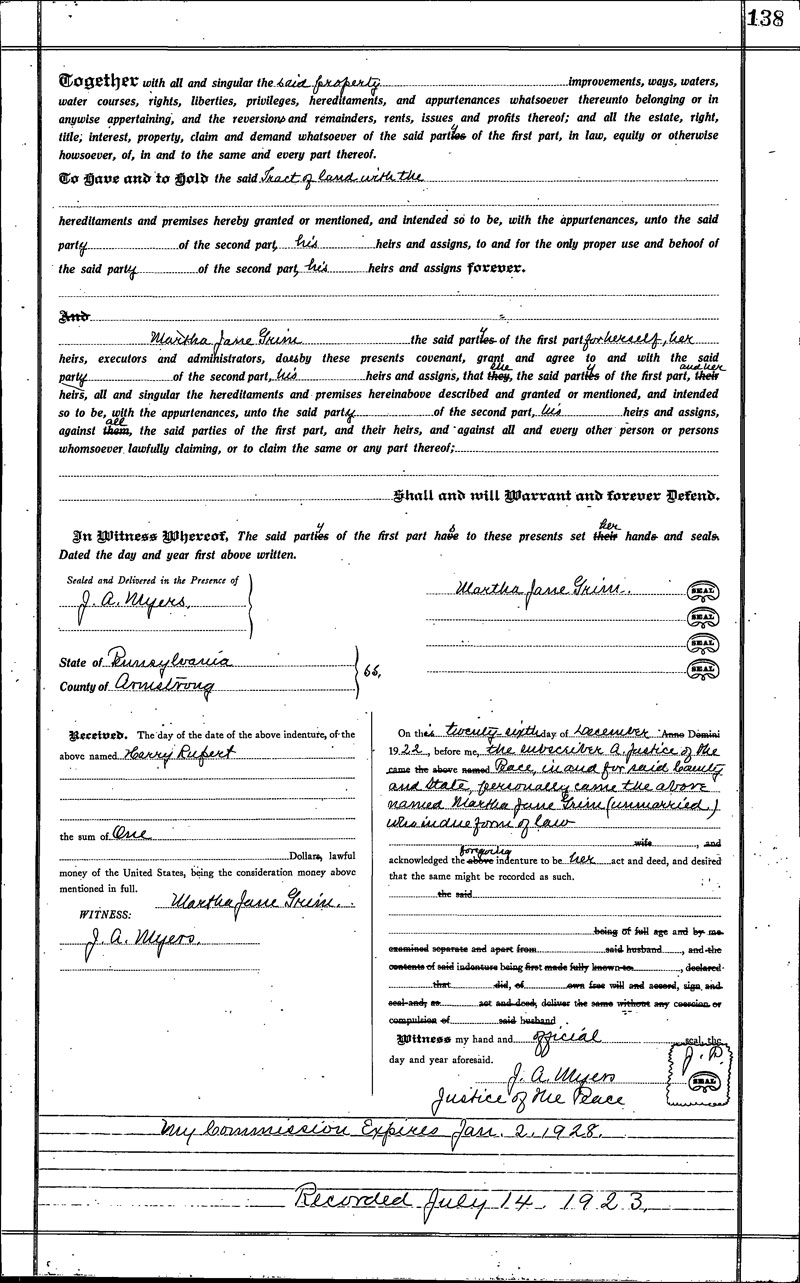 138
Together with all and singular the said property improvements, ways, waters,
water courses, rights, liberties, privileges, hereditaments, and appurtenances whatsoever thereunto belonging or in
anywise appertaining, and the reversions and remainders, rents, issues and profits thereof; and all the estate, right,
title, interest, property, claim and demand whatsoever of the said party of the first part, in law, equity or otherwise
howsoever, of, in and to the same and every part thereof.
To Have and to Hold the said Tract of land with the
hereditaments and premises hereby granted or mentioned, and intended so to be, with the appurtenances, unto the said
party of the second part, his heirs and assigns, to and for the only proper use and behoof of
the said party of the second part, his heirs and assigns forever.
And
Martha Jane Grim the said party of the first part for herself, her
heirs, executors and administrators, does by these presents covenant, grant and agree to and with the said
party of the second part, his heirs and assigns, that they, she the said party of the first part, their and her
heirs, all and singular the hereditaments and premises hereinabove described and granted or mentioned, and intended
so to be, with the appurtenances, unto the said party of the second part, his heirs and assigns,
against them, all the said parties of the first part, and their heirs, and against all and every other person or persons
whomsoever lawfully claiming, or to claim the same or any part thereof;
Shall and will Warrant and forever Defend.
In Witness Whereof, The said party of the first part has to these presents set their her hand and seal.
Dated the day and year first above written.
Sealed and Delivered in the Presence of
J. A. Myers.
Martha Jane Grim. SEAL
SEAL
SEAL
SEAL
State of Pennsylvania
County of Armstrong
ss,
Received. The day of the date of the above indenture, of the
above named Harry Rupert
the sum of One
Dollar, lawful
money of the United States, being the consideration money above
mentioned in full.
Martha Jane Grim.
WITNESS:
J. A. Myers.
On this twenty-sixth day of December Anno Domini
1922, before me, the subscriber a Justice of the
came the above named Peace, in and for said County
and State, personally came the above
named Martha Jane Grim (unmarried)
who in due form of law
wife, and
acknowledged the above foregoing indenture to be her act and deed, and desired
that the same might be recorded as such.
the said
being of full age and by me
examined separate and apart from said husband, and the
contents of said indenture being first made fully known to, declared
that did, of own free will and accord, sign and
seal and, as act and deed, deliver the same without any coercion or
compulsion of said husband
Witness my hand and official seal, the
day and year aforesaid.
J. A. Myers
Justice of the Peace
J. P.
SEAL
My Commission Expires Jan. 2, 1928.
Recorded July 14, 1923.